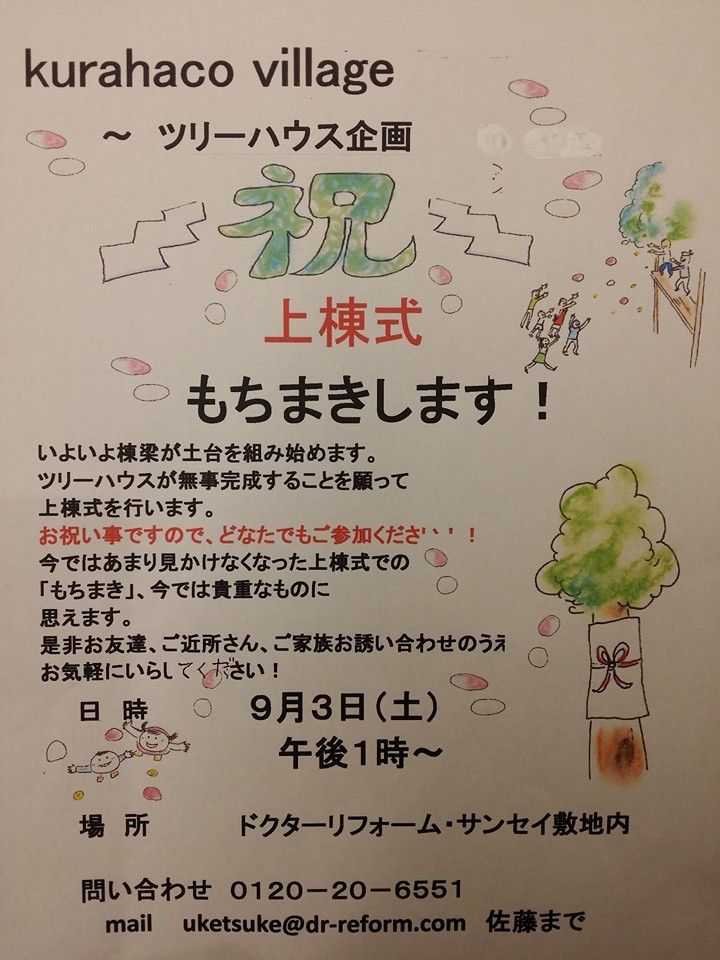 kurahaco village
～ ツリーハウス企画
祝
上棟式
もちまきします！
いよいよ棟梁が土台を組み始めます。
ツリーハウスが無事完成することを願って
上棟式を行います。
お祝い事ですので、どなたでもご参加ください！！
今ではあまり見かけなくなった上棟式での
「もちまき」、今では貴重なものに
思えます。
是非お友達、ご近所さん、ご家族お誘い合わせのうえ
お気軽にいらしてください！
日 時 9月3日（土）
午後1時～
場 所 ドクターリフォーム・サンセイ敷地内
問い合わせ 0120－20－6551
mail uketsuke@dr-reform.com 佐藤まで